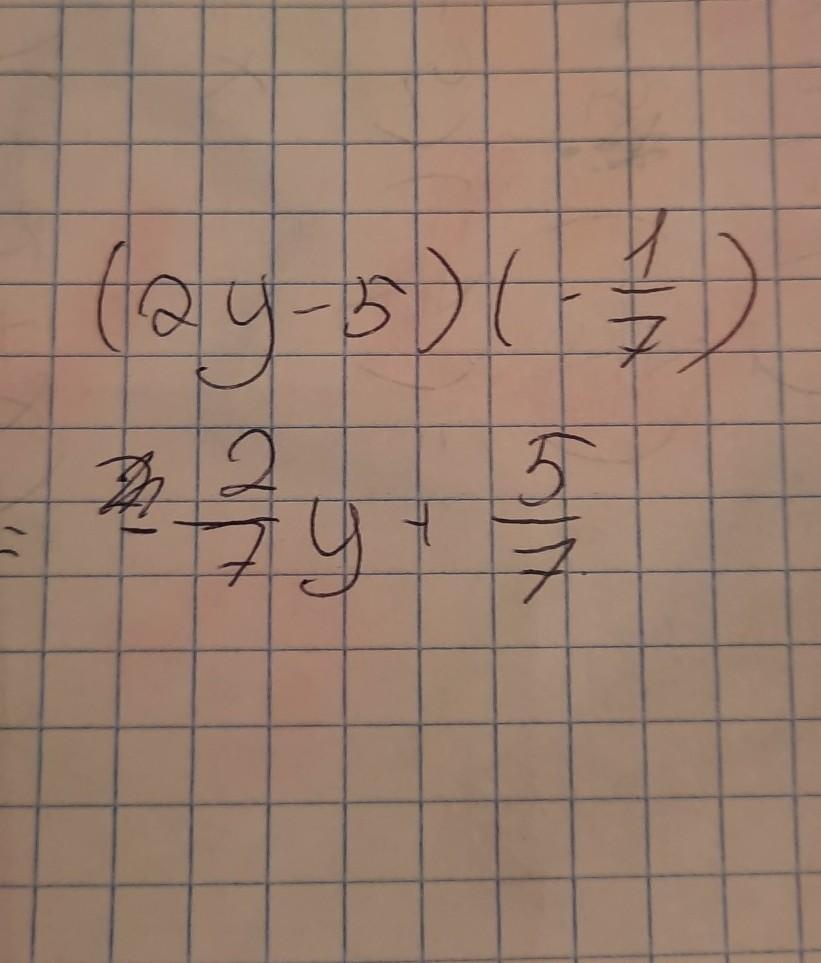 (2y-5)(-1/7)
= -2/7y+5/7